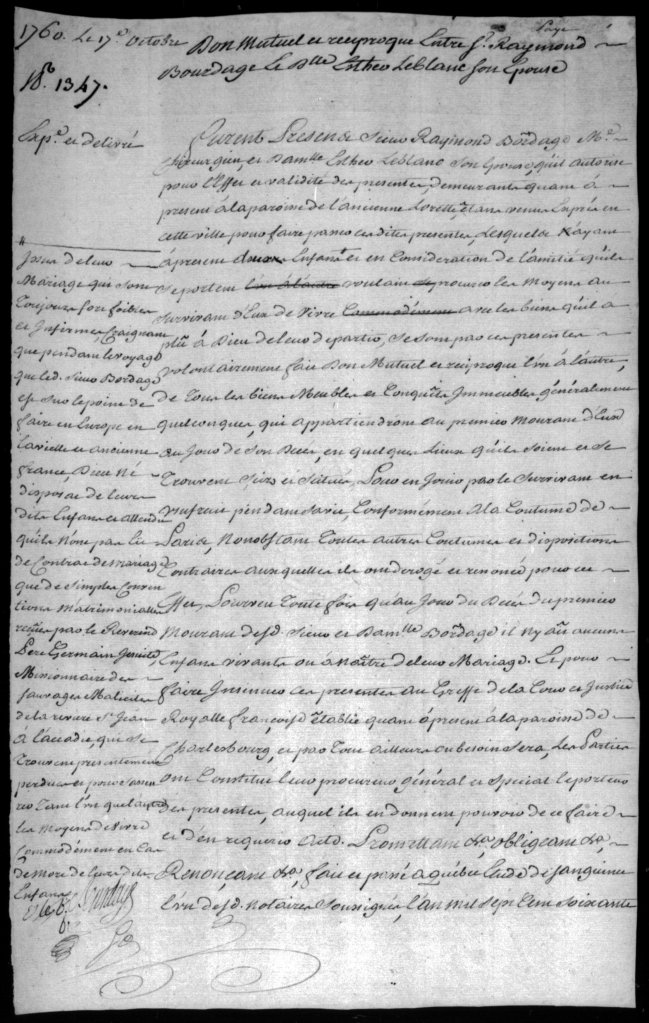 1760. Le 17.e Octobre
Don Mutuel et reciproque Entre Sr. Raymond
Bourdage Et Dlle Esther Leblanc Son Epouse
No. 1347.
Exp.e et delivré
Furent Presens Sieur Raymond Bordage Me.
Chirurgien, et Damlle Esther Leblanc Son Epouse, qu'il autorise
pour l'Effet et validité des presentes demeurants quant à
present à la paroisse de l'ancienne Lorette, Etans venus Exprés en
cette ville pour faire passer ces dites presentes, Lesquels N'ayant
apresent Enfants et en Consideration de l'amitié qu'ils
Se portent l'un à l'autre voulant se procurer les Moyens au
Survivant d'Eux de Vivre Commodement avec les biens qu'il a
plû à Dieu de leur departir, Se sont par ces presentes
volontairement fait Don Mutuel et reciproque l'un à l'autre,
de Tous les biens Meubles et Conquêts Immeubles généralement
quelconques, qui appartiendront au premier Mourant d'Eux
au Jour de Son Decés, en quelques Lieux qu'ils Soient et Se
Trouvent Sizes et Scitués, Pour en Jouir par le Survivant en
Usufruit pendant Sa vie, Conformément à la Coutume de
Paris, Nonobstant Toutes autres Coutumes et dispositions
Contraires auxquelles ils ont derogé et renoncé pour cet
Effet, Pourveu Toutefois qu'au Jour du Decés du premier
Mourant desd. Sieur et Damlle Bordage il n'y ait aucuns
Enfans vivants ou à Naître de leur Mariage. Et pour
faire Insinuer ces presentes au Greffe de la Cour et Justice
Royalle françoise établie quant à present à la paroisse de
Charlesbourg, et par Tout ailleurs ou besoin Sera, Les Parties
ont Constitué leur procureur général et Spécial le porteur
des presentes, auquel ils en donnent pouvoir de ce faire
et d'en requerir Acte. Promettant &a. obligeant &a.
Renonçant &a. fait et passé a quebec Etude de Sanguinet
l'un desd. Notaires Soussignés, l'an Mil Sept Cent Soixante
Issus de leur
Mariage qui Sont
Toujours fort foibles
et Infirmes, Craignant
que pendant le voyage
que led. Sieur Bordage
est Sur le point de
faire en Europe en
la vieille et ancienne
france, Dieu Ne
dispose de leurs
dits Enfans et attendu
qu'ils N'ont pas Eu
de Contrat de mariage
que de Simples Conven
tions Matrimonialles
reçues par le Reverend
Pere Germain Jesuite
Missionnaire des
Sauvages Malicites
de la riviere St. Jean
à l'accadie, qui Se
Trouvent presentement
perdues et pour
Tant l'un que l'autre
les Moyens de Vivre
Commodément en Cas
de Mort de
Enfans